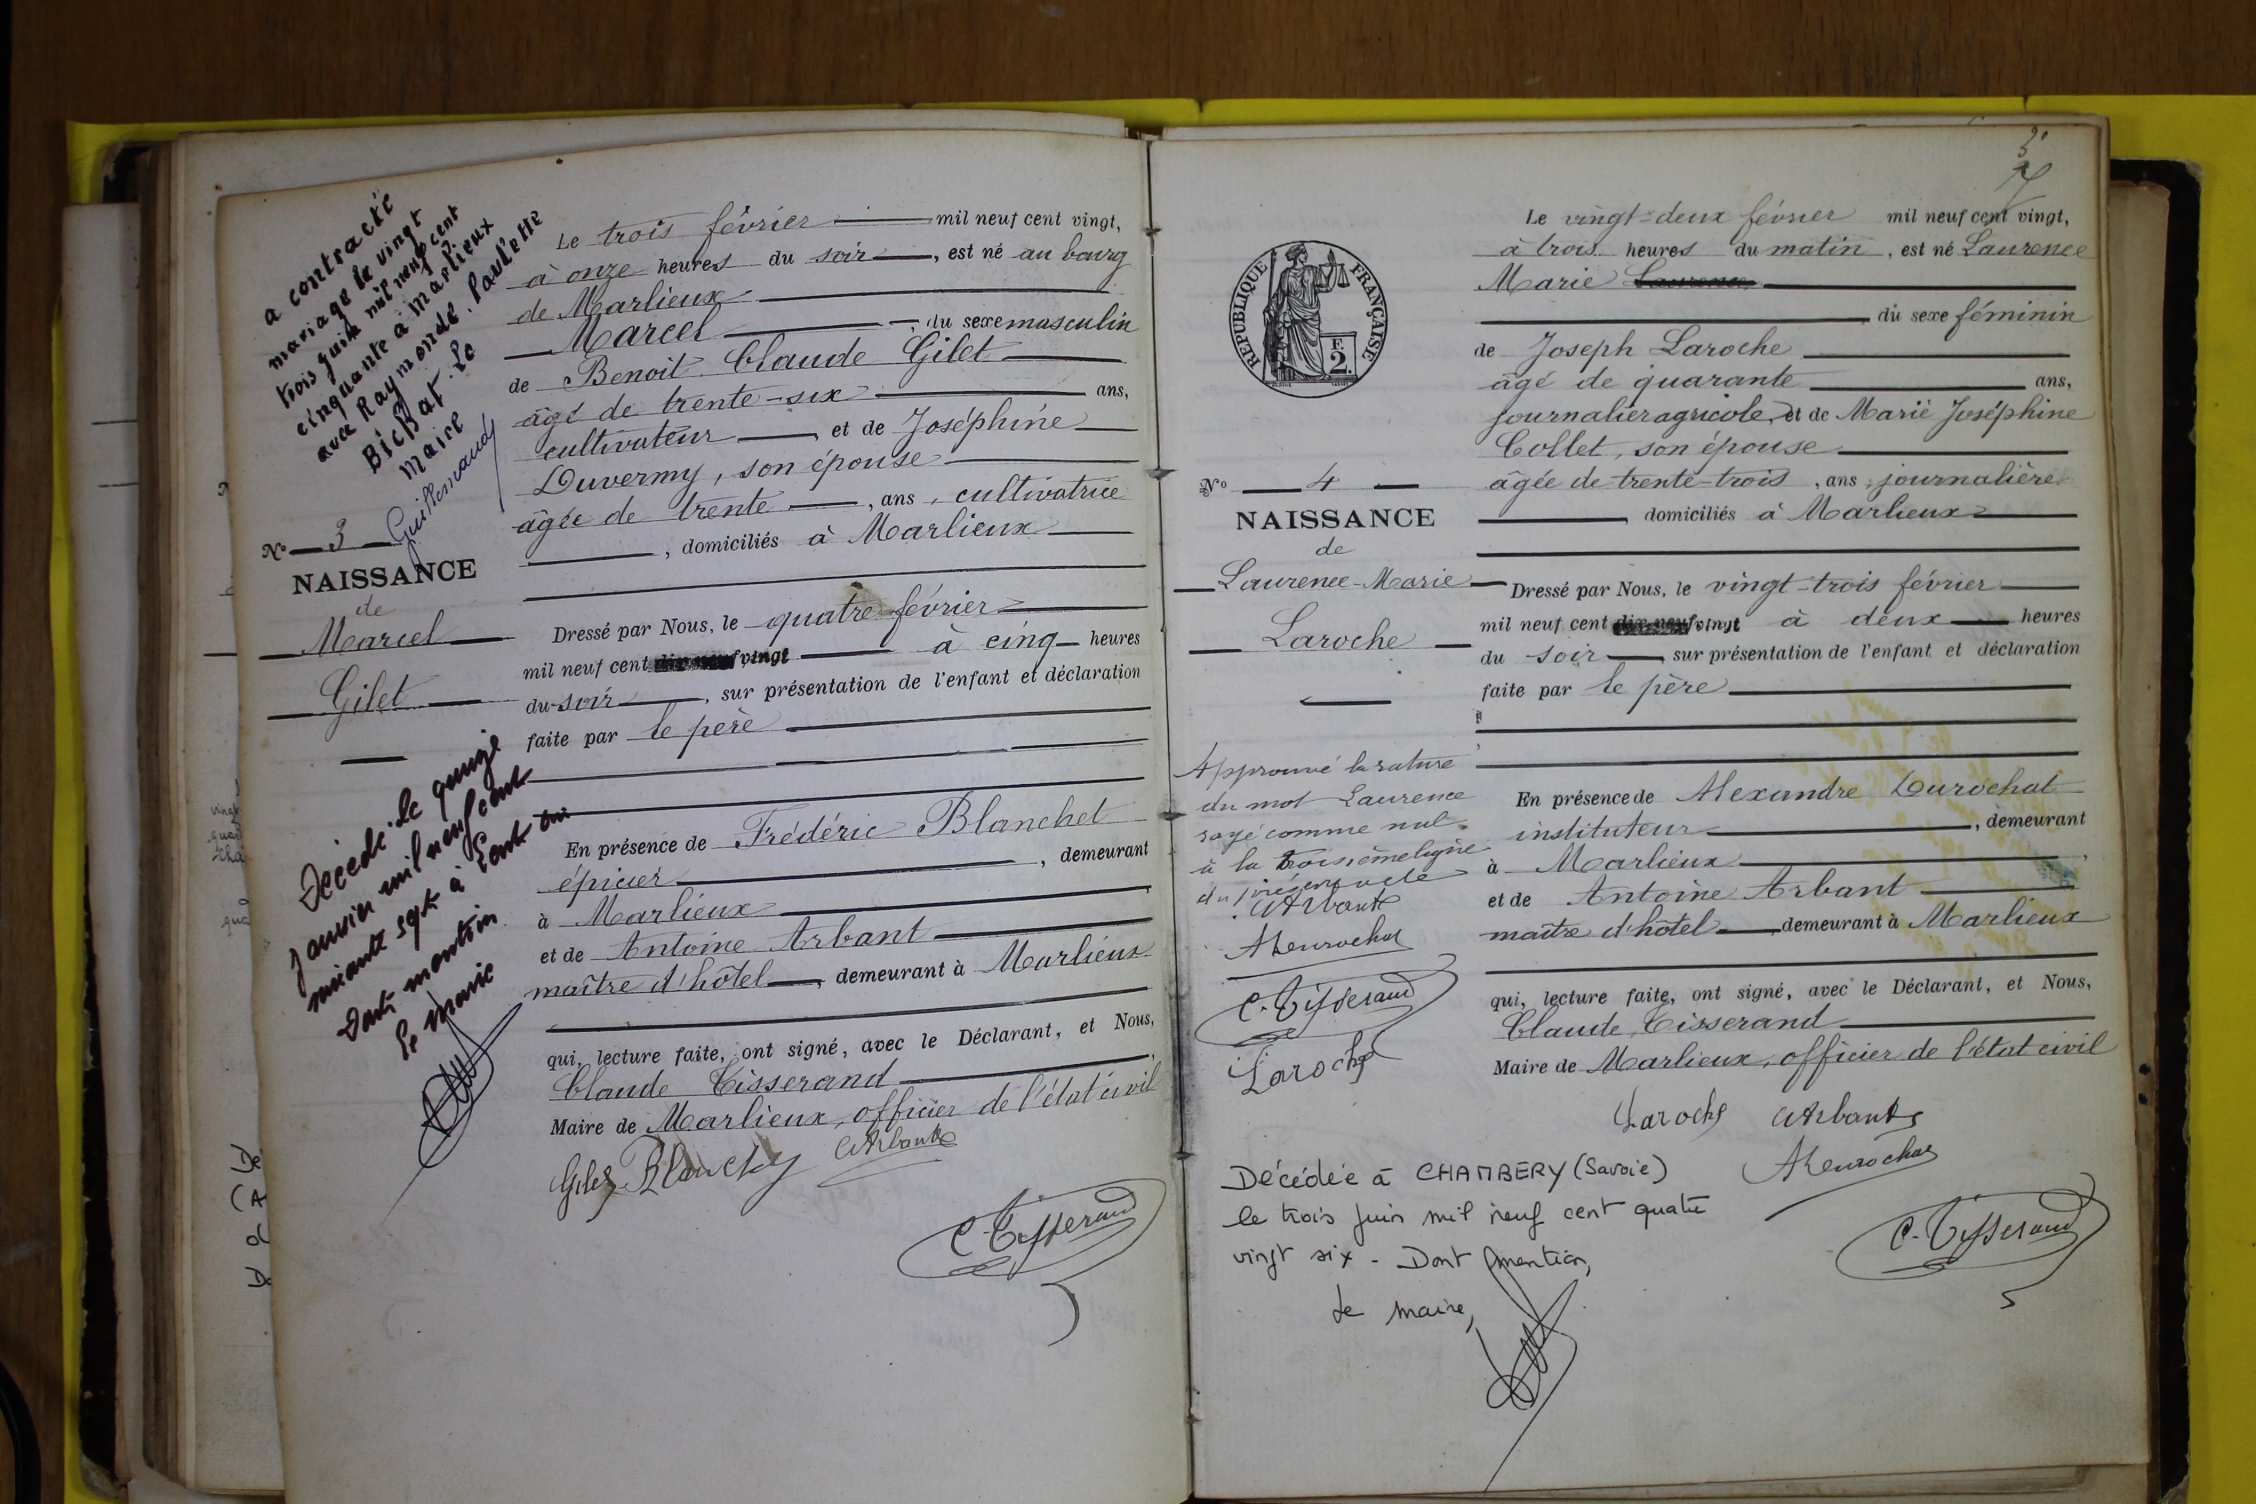 a contracté
mariage le vingt
trois juin mil neuf cent
cinquante à Marlieux
avec Raymonde. Paulette
BICBAT. Le
Maire
Guillemaud
No 3
NAISSANCE
de
Marcel
Gilet
Décédé le quinze
janvier mil neuf cent
sept à
Dont mention
le Maire
Le trois février mil neuf cent vingt,
à onze heures du soir, est né au bourg
de Marlieux
Marcel, du sexe masculin
de Benoit Claude Gilet
âgé de trente-six ans,
cultivateur, et de Joséphine
Duvermy, son épouse
âgée de trente, ans, cultivatrice
, domiciliés à Marlieux
Dressé par Nous, le quatre février
mil neuf cent dix-neuf vingt à cinq heures
du soir, sur présentation de l'enfant et déclaration
faite par le père
En présence de Frédéric Blanchet
épicier, demeurant
à Marlieux
et de Antoine Arbant
maître d'hôtel, demeurant à Marlieux
qui, lecture faite, ont signé, avec le Déclarant, et Nous,
Claude Tisserand
Maire de Marlieux, officier de l'état civil
Gilet Blanchet Arbant
C. Tisserand
RÉPUBLIQUE FRANÇAISE
F.
2.
No 4
NAISSANCE
de
Laurence-Marie
Laroche
Approuvé la rature
du mot Laurence
rayé comme nul
à la troisième ligne
du présent acte
Arbant
C. Tisserand
Laroche
Le vingt-deux février mil neuf cent vingt,
à trois heures du matin, est né Laurence
Marie Laurence
du sexe féminin
de Joseph Laroche
âgé de quarante ans,
journalier agricole, et de Marie Joséphine
Collet, son épouse
âgée de trente-trois, ans, journalière
, domiciliés à Marlieux
Dressé par Nous, le vingt-trois février
mil neuf cent dix-neuf vingt à deux heures
du soir, sur présentation de l'enfant et déclaration
faite par le père
En présence de Alexandre Durochat
instituteur, demeurant
à Marlieux,
et de Antoine Arbant
maître d'hôtel, demeurant à Marlieux
qui, lecture faite, ont signé, avec le Déclarant, et Nous,
Claude Tisserand
Maire de Marlieux, officier de l'état civil
Laroche Arbant
C. Tisserand
Décédée à CHAMBERY (Savoie)
le trois juin mil neuf cent quatre
vingt six - Dont mention,
Le maire,